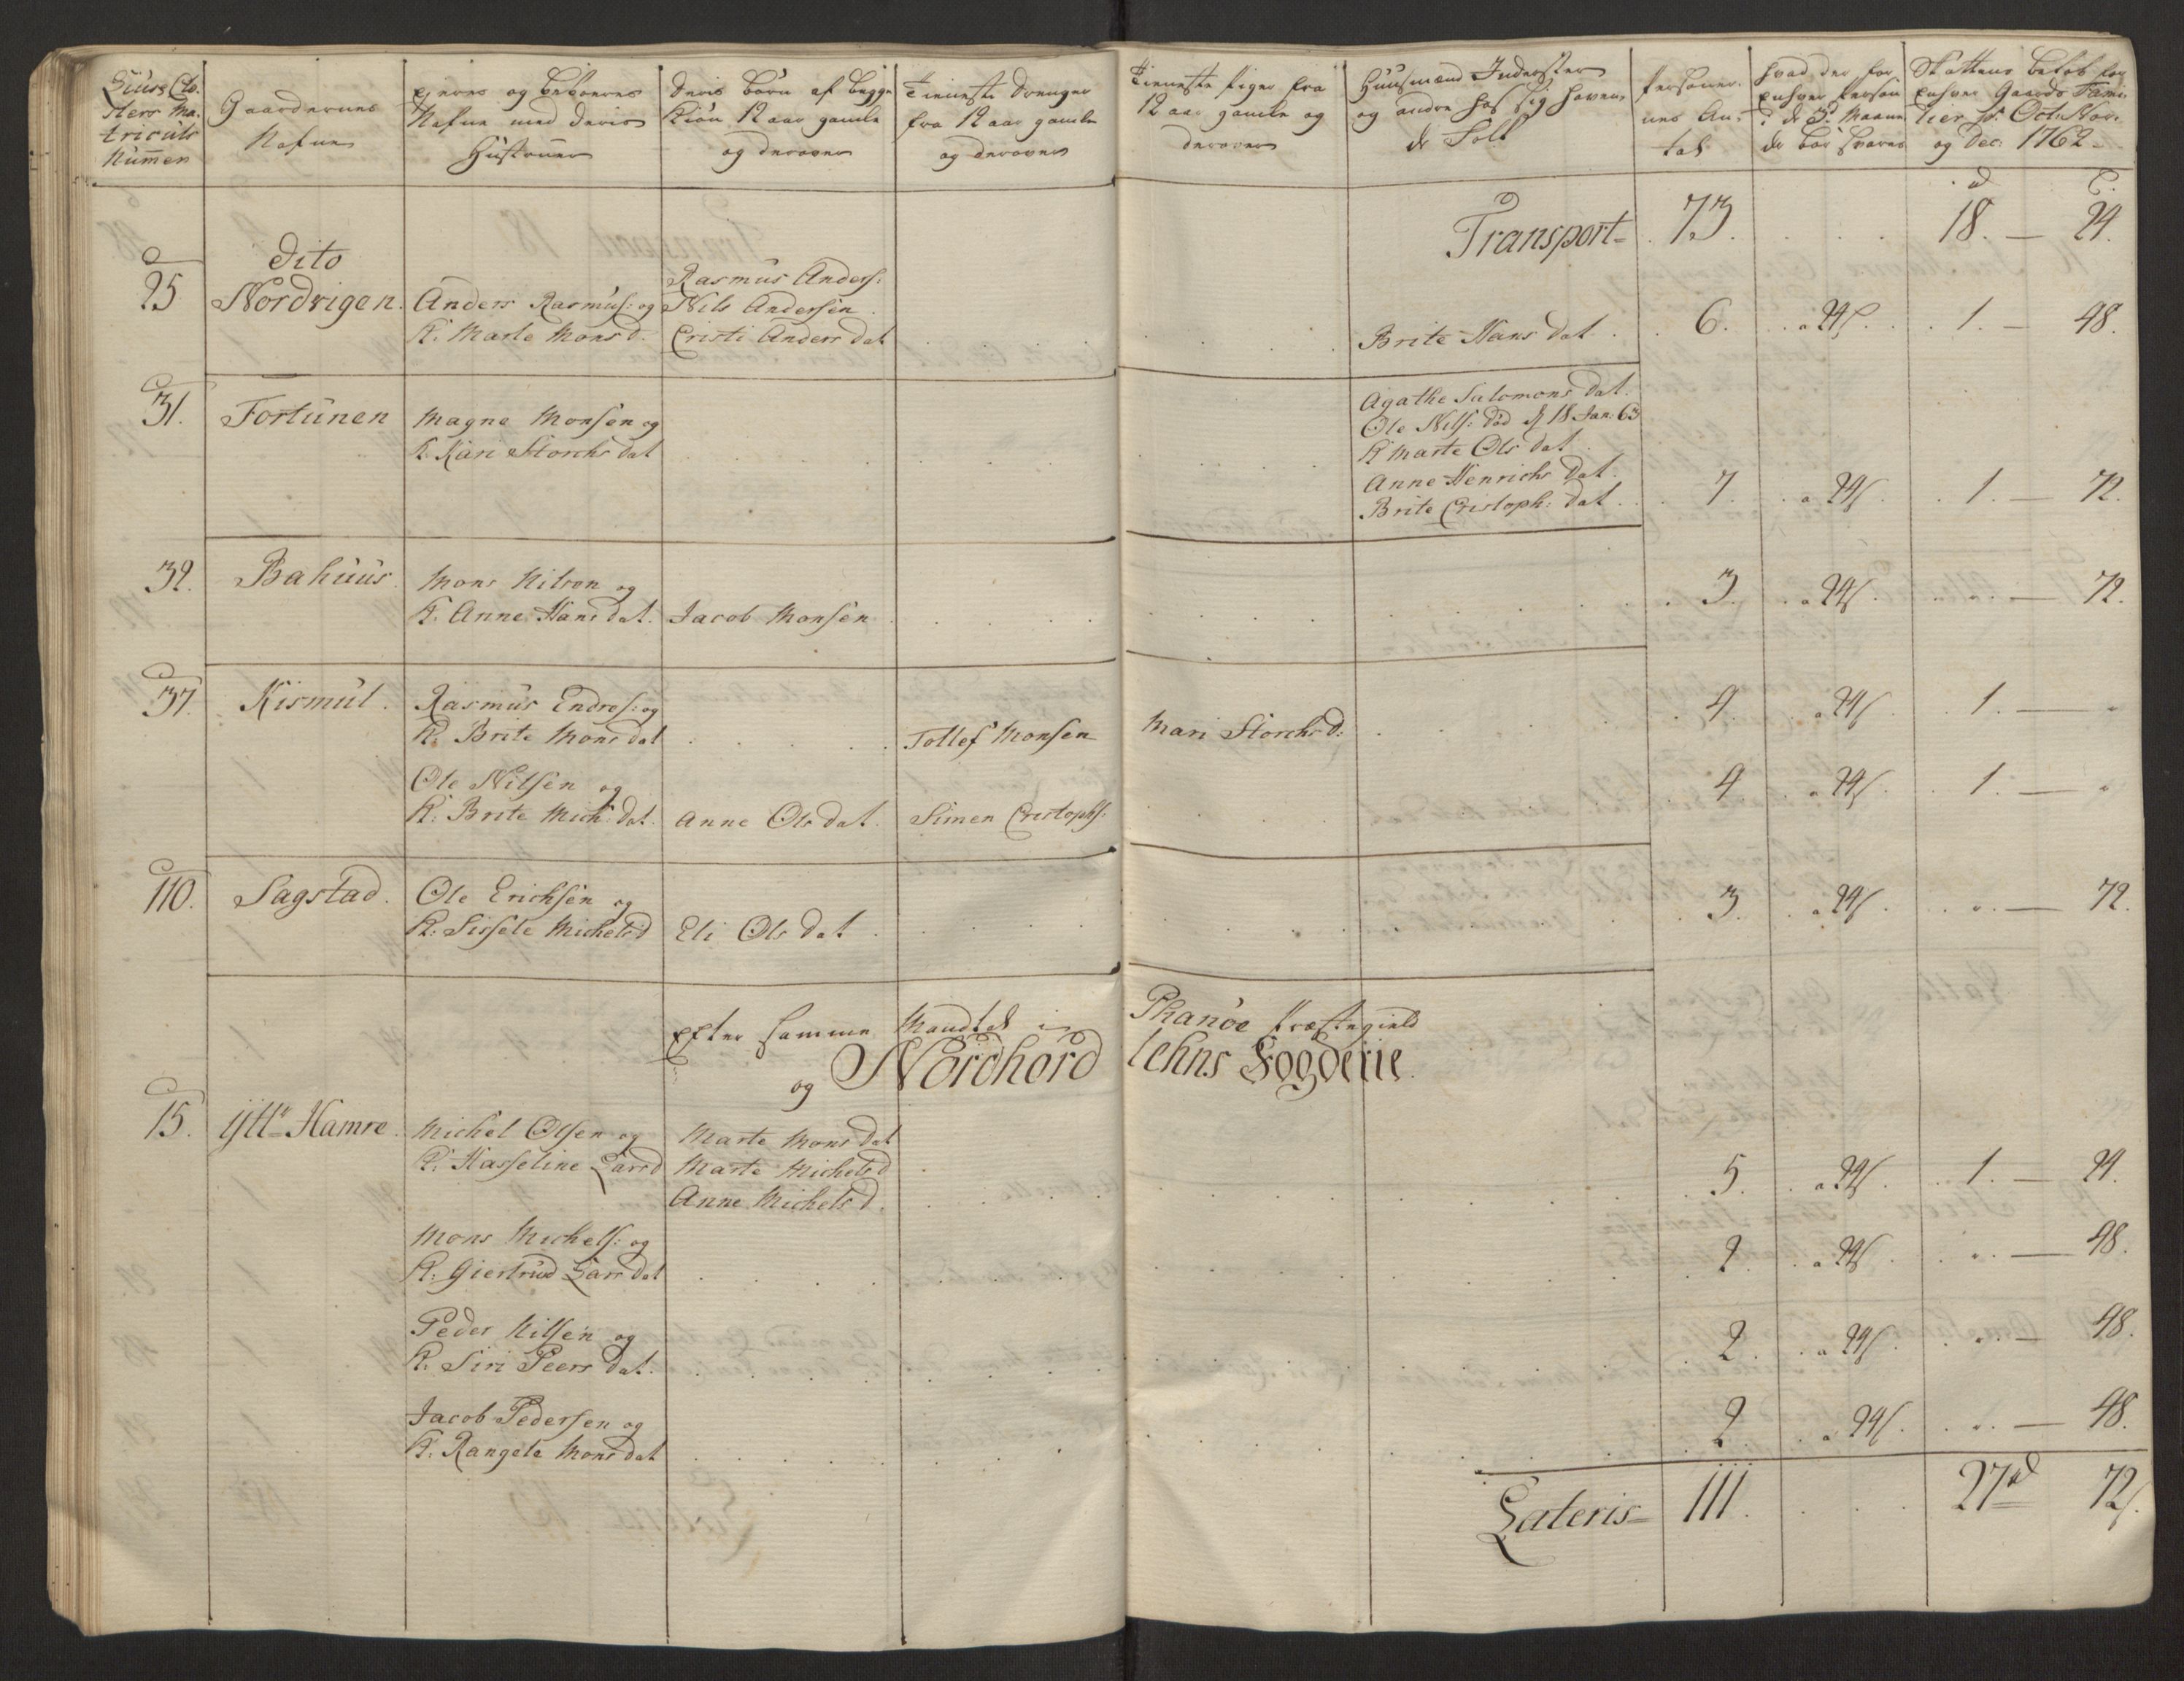 Liure Clo-
sters Ma-
triculs
Numen
Gaardernes
Nafne
Ejeres og Beboeres
Nafne med deris
Hustruer
Deris børn af begge
Kiøn 12 aar gamle
og derover
Tieneste Drenge
fra 12 aar gamle
og derover
Tieneste piger fra
12 aar gamle og
derover
Huusmænd Inderster
og andre hos sig haven-
de Folk
Personer-
nes An-
tal
hvad der for
Enhver Person
i de 3de Maane
der bør svares
Skattens beløb for
Enhver Gaards Fami-
lier pr Oct: Nov:
og Dec: 1762
Transport 73 18 — 24
25 Dito
Nordvigen Anders Rasmus: og
K. Marte Monsd. Rasmus Anders:
Nils Andersen
Cristi Anders dat Brite Hans dat 6 a 24s 1 — 48
31 Fortunen Magne Monsen og
K. Kari Storchs dat Agathe Salomons dat
Ole Nils: død d 18 Jan: 63
K Marte Ols dat
Anne Henrichs dat
Brite Cristoph: dat 7 a 24s 1 — 72
32 Bahuus Mons Nilsen og
K. Anne Hans dat Jacob Monsen 3 a 24s — 72
37 Kismul Rasmus Endres: og
K. Brite Mons dat Tollef Monsen Mari Storchs d: 4 a 24s 1 —
Ole Nilsen og
K. Brite Mich: dat Anne Ols dat Simen Cristophs: 4 a 24s 1 —
110 Sagstad Ole Erichsen og
K. Sissele Michelsd Eli Ols dat 3 a 24s — 72
Efter samme Mandtal i Phanøe Præstegield
og Nordhordlehns Fogderie
15 Ytt Hamre Michel Olsen og
K. Hasseline Larsd Marte Mons dat
Marte Michels d
Anne Michels d 5 a 24s 1 — 24
Mons Michels: og
K. Giertrud Lars dat 2 a 24s — 48
Peder Nilsen og
K. Siri Peers dat 2 a 24s — 48
Jacob Pedersen og
K. Rangele Mons dat 2 a 24s — 48
Lateris 111 27 72